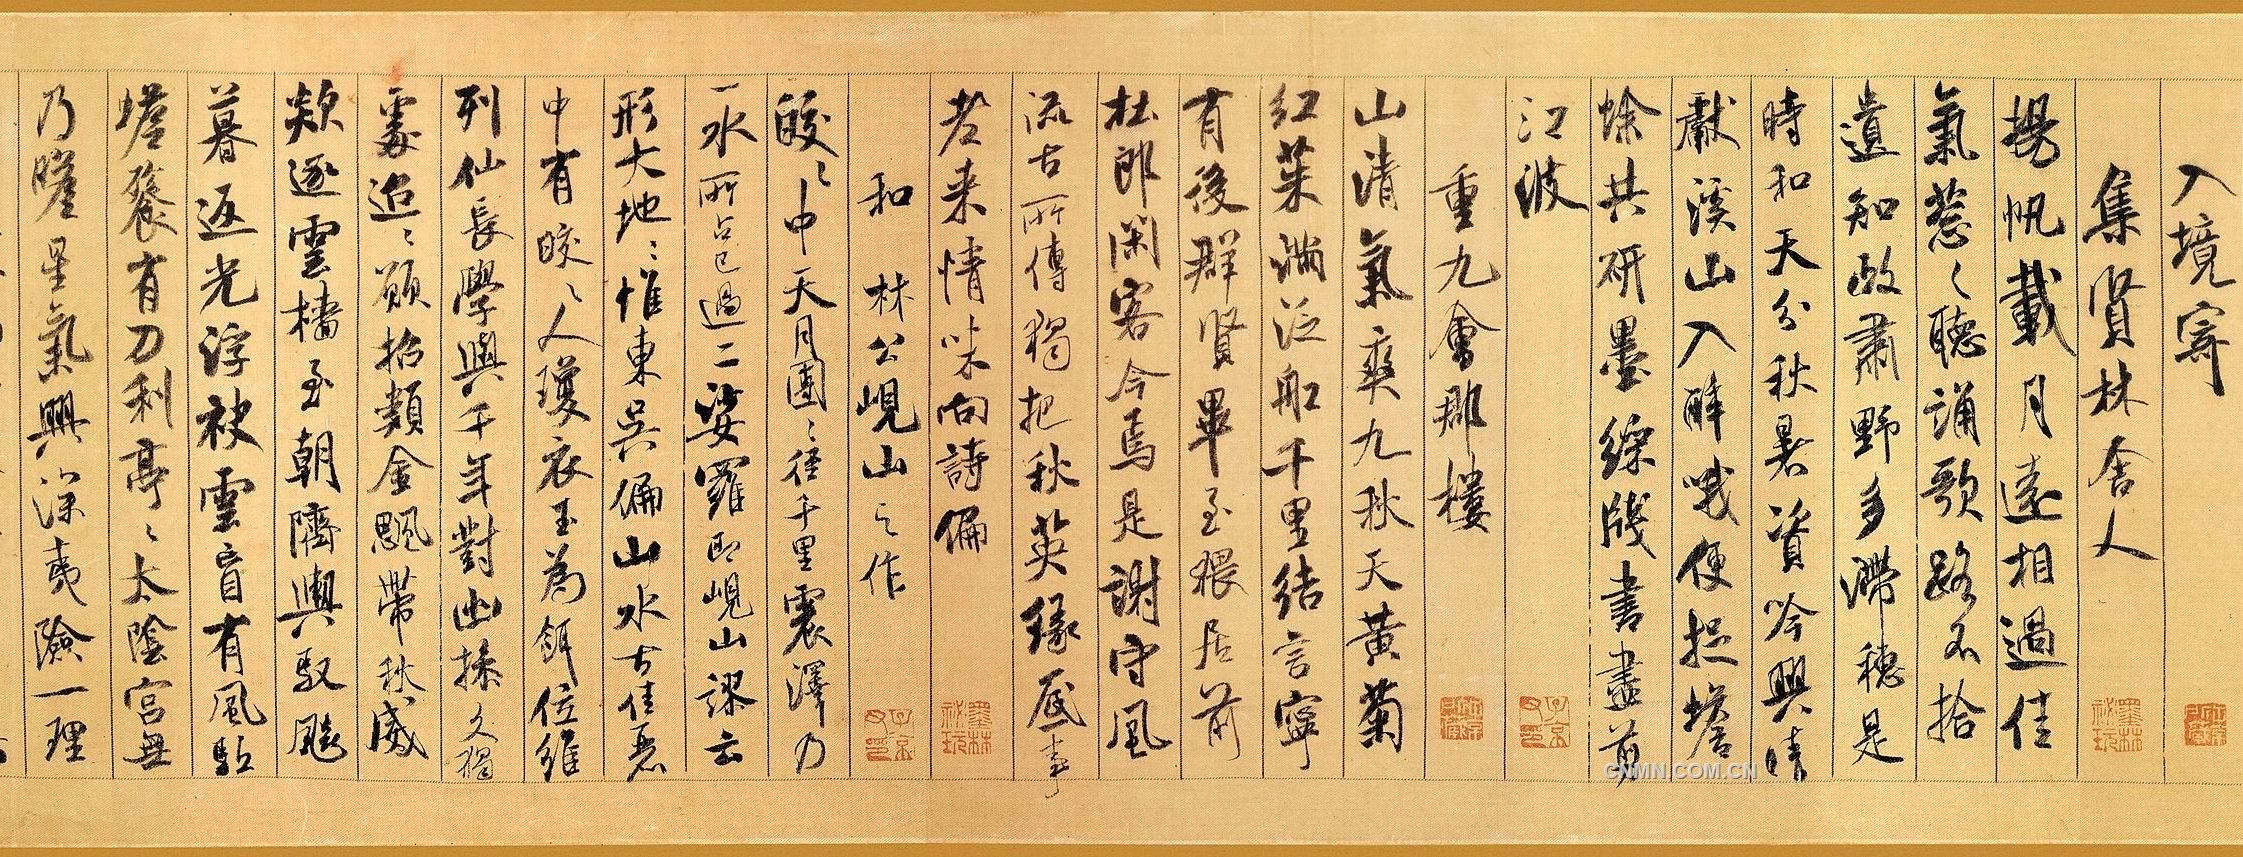 入境寄
集賢林舍人
揚帆載月遠相過佳
氣蔥〻聽誦歌路不拾
遺知政肅野多滯穗是
時和天分秋暑資吟興晴
獻溪山入醉哦便捉蟾
蜍共研墨綵牋書盡剪
江波
重九會郡樓
山清氣爽九秋天黃菊
紅茱滿泛船千里結言寧
有後群賢畢至猥居前
杜郎閑客今焉是謝守風
流古所傳獨把秋英緣底事
老來情味向詩偏
和林公峴山之作
皎〻中天月團〻徑千里震澤乃
一水所占已過二娑羅即峴山謬云
形大地〻惟東吳偏山水古佳麗
中有皎〻人瓊衣玉為餌位維
列仙長學與千年對幽操久獨
處迢〻願招類金颸帶秋威
欻逐雲檣至朝隮輿馭飈
暮返光浮袂雲盲有風驅
蟾餮有刀利亭〻太陰宮無
乃瞻星氣興深夷險一理
CNMN.COM.CN